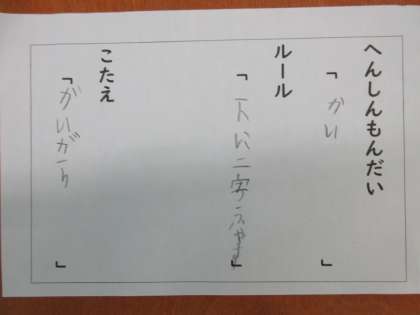 へんしんもんだい
「かい」
ルール
「下に二字ふやす」
こたえ
「かいがら」